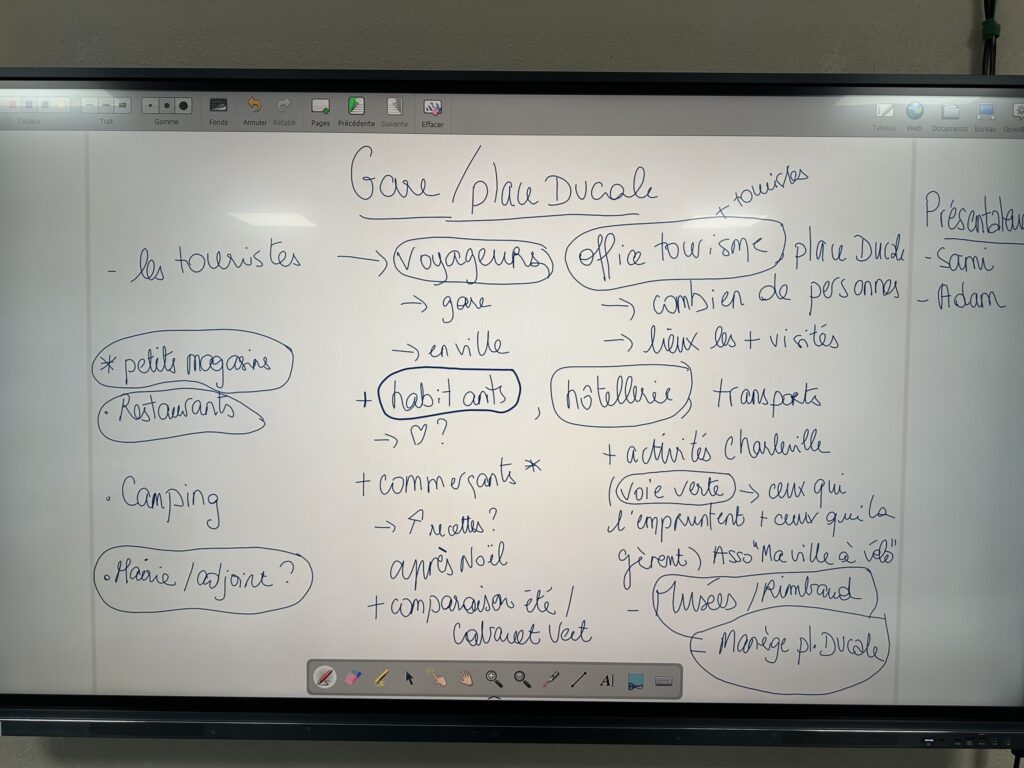 Couleur
Trait
Gomme
Fonds
Annuler
Rétablir
Pages
Précédente
Suivante
Effacer
Tableau
Web
Documents
Bureau
Gare / place Ducale
- les touristes
* petits magasins
. Restaurants
. Camping
. Mairie / adjoint ?
→ voyageurs
→ gare
→ en ville
+ habitants, hôtellerie, transports
→ ♡ ?
+ commerçants *
→ ↗ recettes ?
après Noël
+ comparaison été /
Cabaret Vert
+ touristes
office tourisme, place Ducale
→ combien de personnes
→ lieux les + visités
+ activités Charleville
(voie verte → ceux qui
l'empruntent + ceux qui la
gèrent) Asso "Ma ville à vélo"
- Musées / Rimbaud
- Manège pl. Ducale
Présentateur
- Sami
- Adam